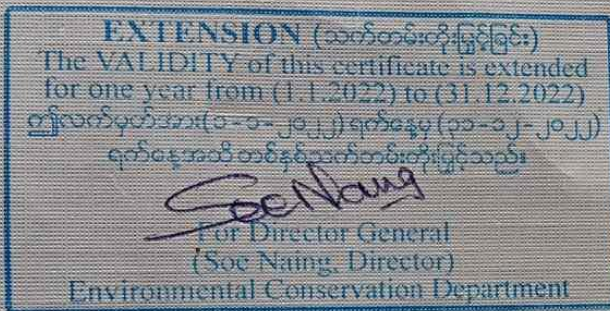 EXTENSION (သက်တမ်းတိုးမြှင့်ခြင်း)
The VALIDITY of this certificate is extended
for one year from (1.1.2022) to (31.12.2022)
ဤလက်မှတ်အား(၁-၁-၂၀၂၂)ရက်နေ့မှ (၃၁-၁၂-၂၀၂၂)
ရက်နေ့အထိ တစ်နှစ်သက်တမ်းတိုးမြှင့်သည်။
Soe Naing
For Director General
(Soe Naing, Director)
Environmental Conservation Department